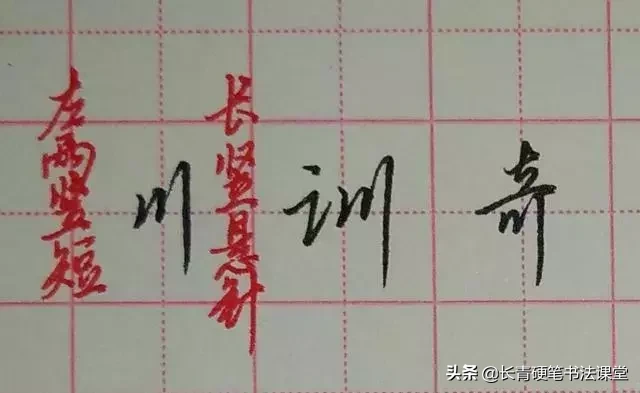 左两竖短
川
长竖悬针
训
奇
头条 @长青硬笔书法课堂